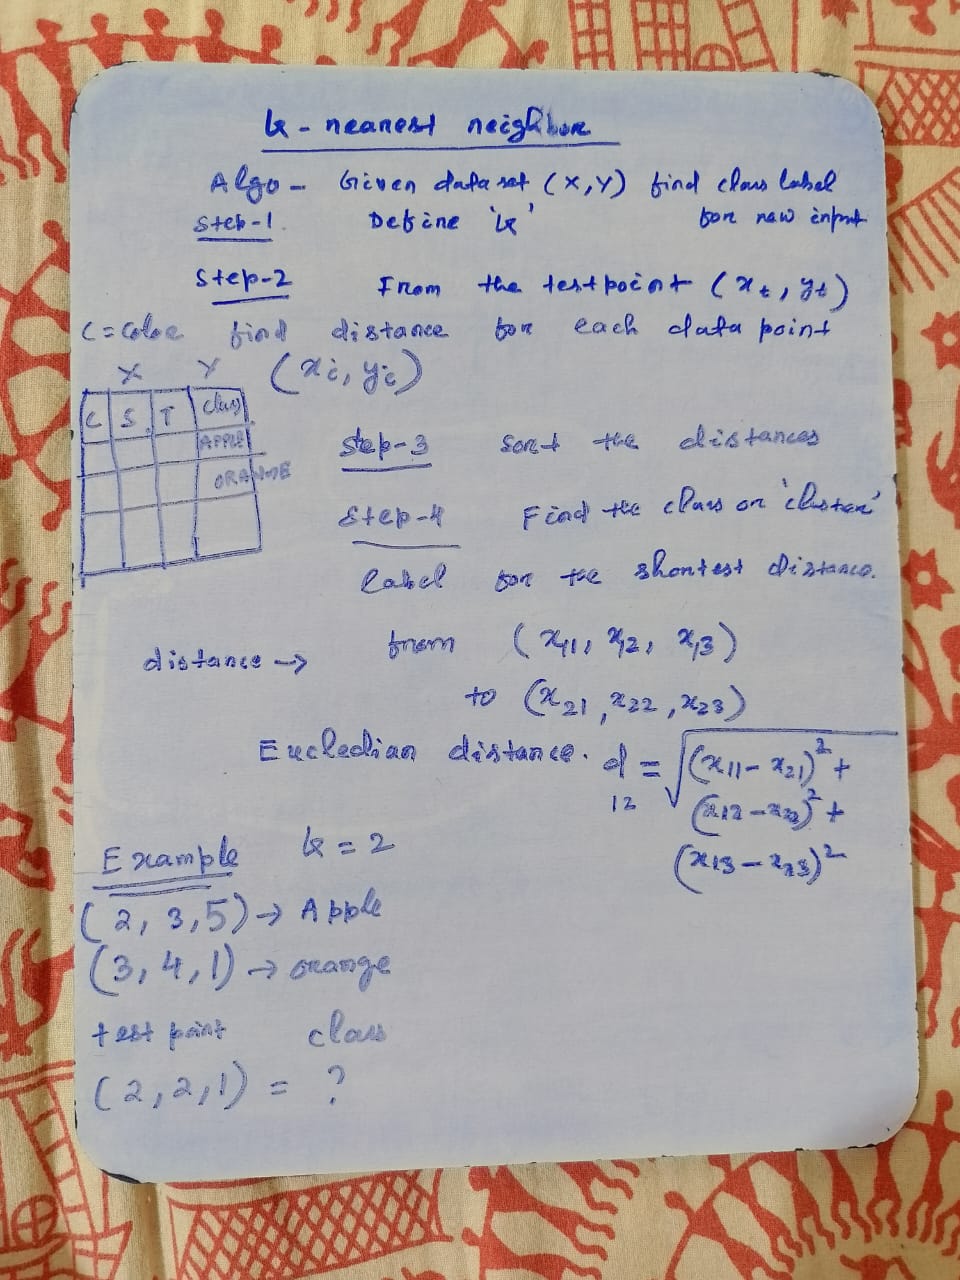 k - nearest neighbor
Algo - Given data set (X,Y) find class label
Step-1. Define 'k' for new input
Step-2 From the test point (xt, yt)
C = Color find distance for each data point
X Y (xi, yi)
C S T class
APPLE
ORANGE
Step-3 Sort the distances
Step-4 Find the class or 'cluster'
label for the shortest distance.
distance → from (x11, x12, x13)
to (x21, x22, x23)
Eucledian distance. d12 = √(x11 - x21)² +
(x12 - x22)² +
(x13 - x23)²
Example k = 2
(2, 3, 5) → Apple
(3, 4, 1) → orange
test point class
(2, 2, 1) = ?